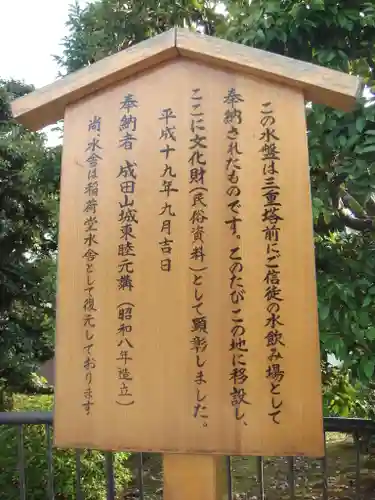 この水盤は三重塔前にご信徒の水飲み場として
奉納されたものです。このたびこの地に移設し、
ここに文化財(民俗資料)として顕彰しました。
平成十九年九月吉日
奉納者 成田山城東睦元講(昭和八年造立)
尚水舎は稲荷堂水舎として復元しております